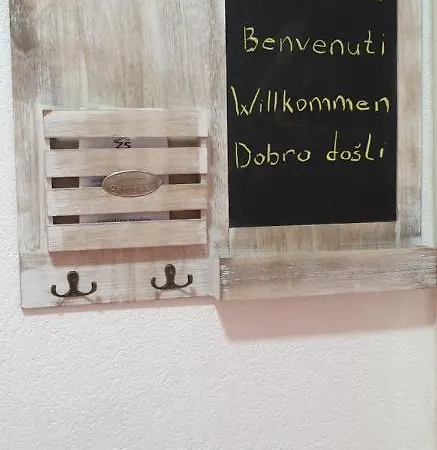 Benvenuti
Willkommen
Dobro došli